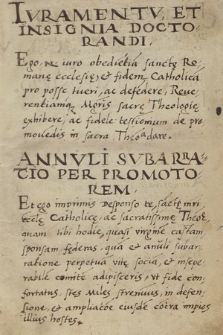 IVRAMENTV, ET
INSIGNIA DOCTO
RANDI.
Ego N: iuro obedietiā sanctę Ro
manę ecclesię, et fidem Catholicā
pro posse tueri, ac defēdere, Reue
rentiamq Mgris sacrę Theologię
exhibere, ac fidele testimum de pro
mouēdis in sacra Theoᵃ dare.
ANNVLI SVBARBA
TIO PER PROMOTO
REM.
Et ego imprimis desponso te, sacię
Catholicę, ac sacratissimę Theoᵉ
quam tibi hodie, quasi virginē castam
sponsam foederas, qua et anūli subar
ratione perpetua vitę socia, et insepe
rabile comitē adipisceris, vt fide con
fortatus, stes Miles strenuus, in defen
sione, et ampliatoē eiusdē cōtra impios
illius hostes.